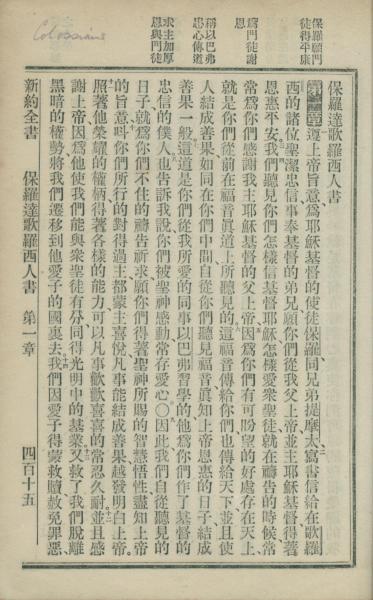 Colossians
保羅願門
徒得平康
爲門徒謝
恩
稱以巴弗
忠心傳道
求主加厚
恩與門徒
保羅達歌羅西人書
遵上帝旨意爲耶穌基督的使徒保羅同兄弟提摩太寫書信給在歌羅
西的諸位聖潔忠信事奉基督的弟兄願你們從我父上帝並主耶穌基督得著
恩惠平安我們聽見你們怎樣信基督耶穌怎樣愛衆聖徒就在禱告的時候常
常爲你們感謝我主耶穌基督的父上帝因爲你們有可盼望的好處存在天上
就是你們從前在福音眞道上所聽見的這福音傳給你們也傳給天下並且使
人結成善果如同在你們中間自從你們聽見福音眞知上帝恩惠的日子結成
善果一般這道是你們從我所愛的同事以巴弗習學的他爲你們作了基督的
忠信的僕人也告訴我說你們被聖神感動常存愛心〇因此我們自從聽見的
日子就爲你們不住的禱告祈求願你們得著聖神所賜的智慧悟性盡知上帝
的旨意叫你們所行的對得過主都蒙主喜悅凡事能結成善果越發明白上帝
照著他榮耀的權柄得著各樣的能力可以凡事歡歡喜喜的常忍久耐並且感
謝上帝因爲他使我們能與衆聖徒有分同得光明中的基業又救了我們脫離
黑暗的權勢將我們遷移到他愛子的國裏去我們因愛子得蒙救贖赦免罪惡
新約全書 保羅達歌羅西人書 第一章 四百十五